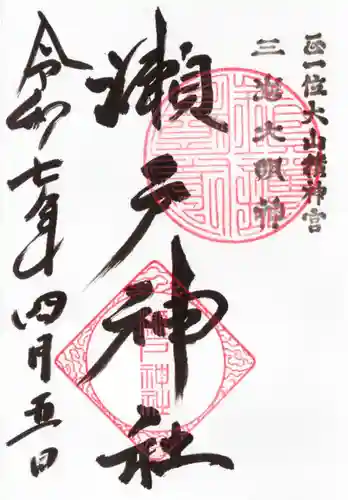 正一位大山積神宮
三嶋大明神
瀬戸神社
令和七年四月五日
瀬戸神社